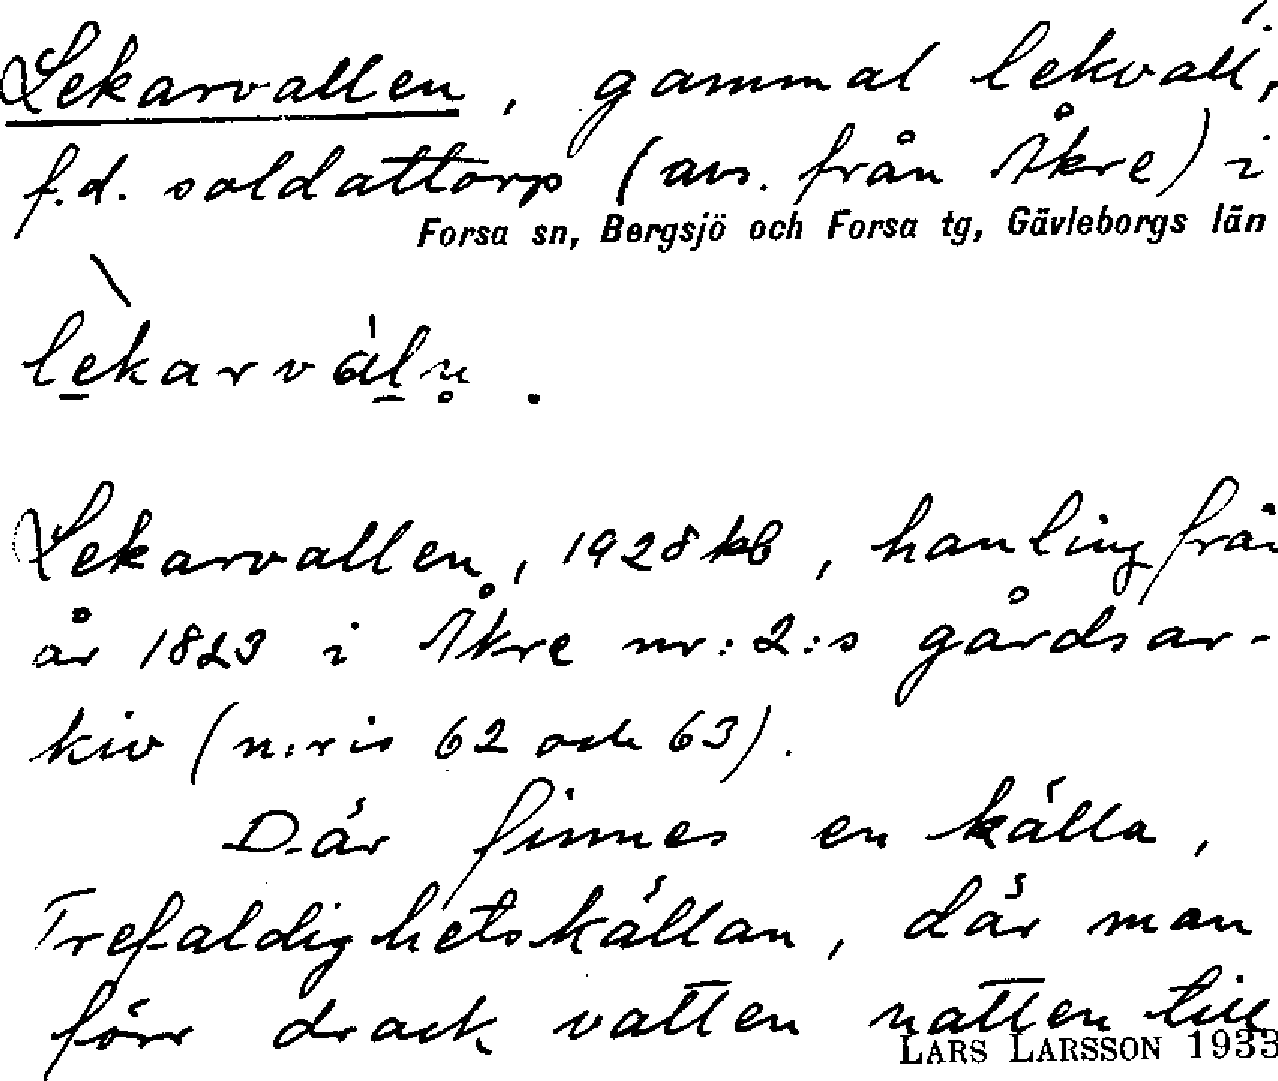 Lekarvallen, gammal lekvall,
f.d. soldattorp (avs. från Åkre) i
Forsa sn, Bergsjö och Forsa tg, Gävleborgs län
lekarvàln̥.
Lekarvallen, 1928 kb, hanling från
år 1823 i Åkre nr:2:s gårdsar-
kiv (n:ris 62 och 63).
Där finnes en källa,
Trefaldighetskällan, där man
förr drack vatten natten till
LARS LARSSON 1933